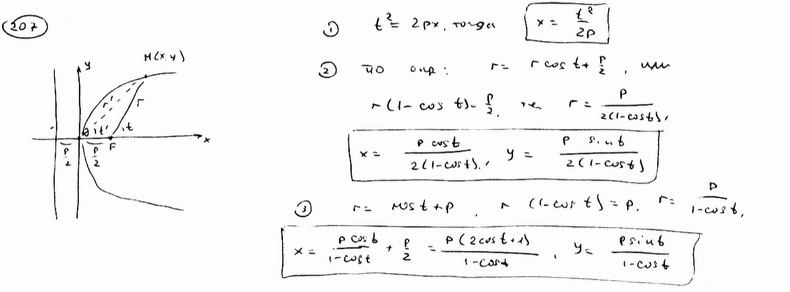 207
① t² = 2px, тогда x = t²/2p
② по опр: r = r cos t + p/2, или
r(1 - cos t) = p/2, т.е. r = p/2(1-cos t),
x = p cos t/2(1-cos t), y = p sin t/2(1-cos t)
③ r = r cos t + p, r (1-cos t) = p, r = p/1-cos t,
x = p cos t/1-cos t + p/2 = p(2cos t+1)/1-cos t, y = p sin t/1-cos t
M(x y)
y
r' r
t' t
F x
p/2 p/2